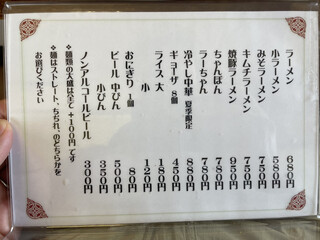 ラーメン 680円
小ラーメン 580円
みそラーメン 750円
キムチラーメン 750円
焼豚ラーメン 950円
ちゃんぽん 780円
ラーちゃん 780円
冷やし中華 夏季限定 880円
ギョーザ 8個 450円
ライス 大 180円
小 120円
おにぎり 1個 80円
ビール 中びん 500円
小びん 350円
ノンアルコールビール 300円
※麺類の大盛は全て+100円です
※麺はストレート、ちぢれ、のどちらかを
お選びください